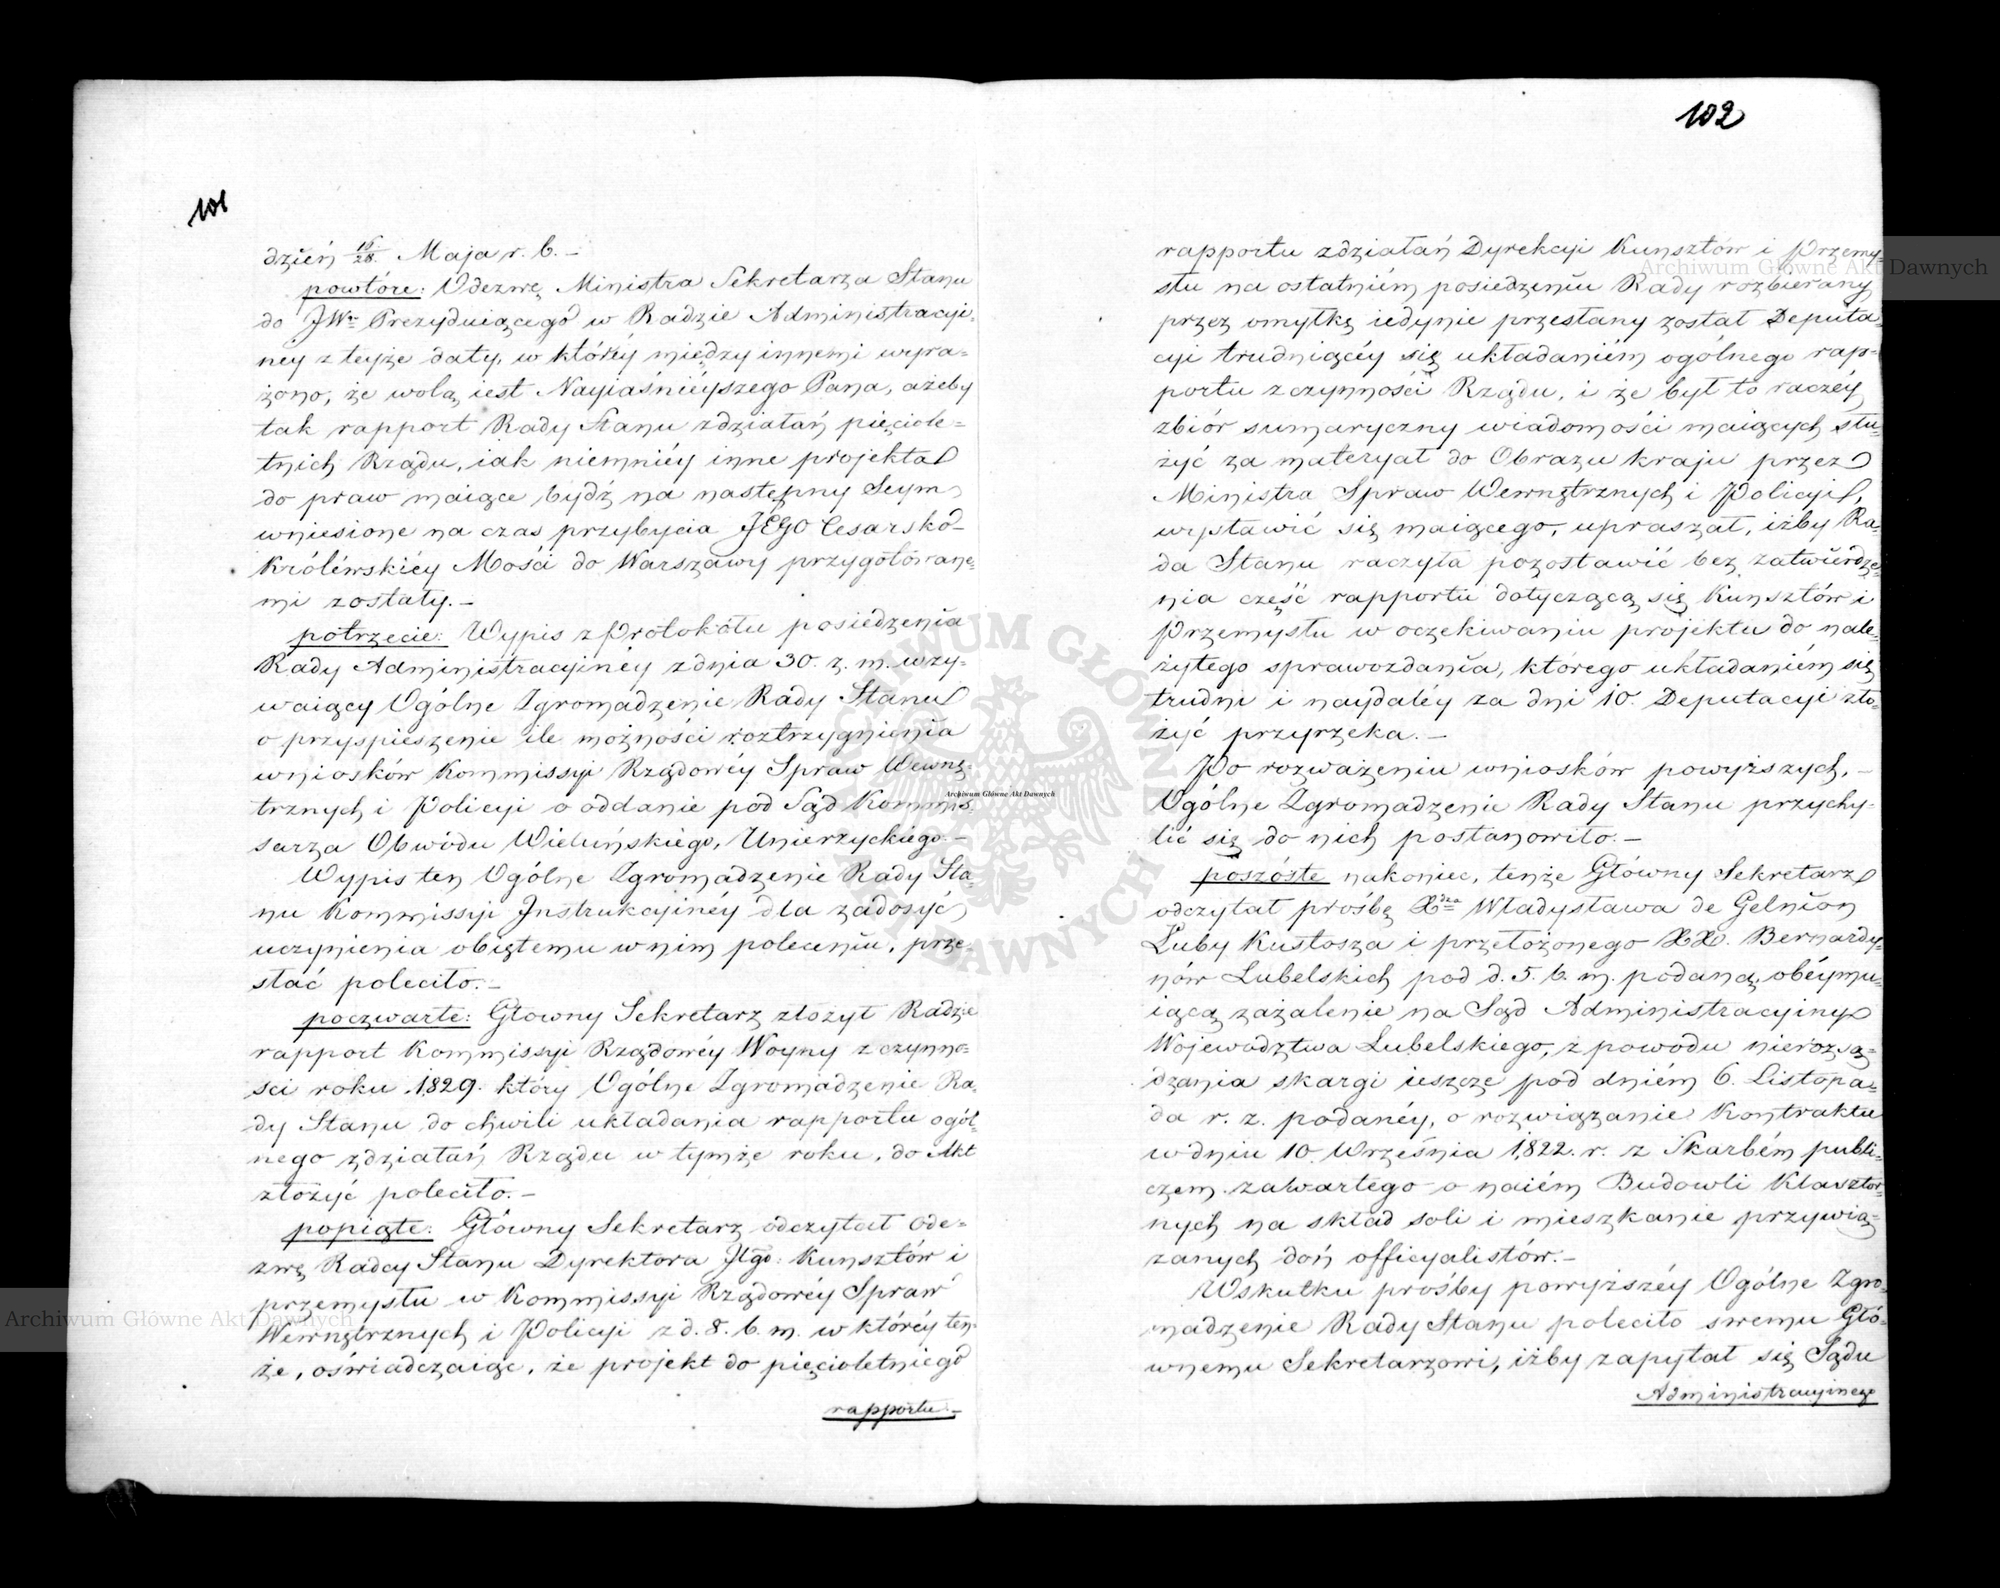 101
dzień 16/28. Maja r. b. –
powtóre: Odezwę Ministra Sekretarza Stanu
do JWo Prezyduiącego w Radzie Administracyi-
néy z teyże daty, w któréy między innemi wyra-
żono, że wolą iest Nayiaśnieyszego Pana, ażeby
tak rapport Rady Stanu zdziałań pięciole-
tnich Rządu, iak niemniéy inne projekta
do praw maiące bydź na następny Seym
wniesione na czas przybycia JEGO Cesarsko-
Królewskiéy Mości do Warszawy przygotowane-
mi zostały. –
potrzecie: Wypis z Protokółu posiedzenia
Rady Administracyinéy z dnia 30. z. m. wzy-
waiący Ogólne Zgromadzenie Rady Stanu
o przyspieszenie ile możności roztrzygnienia
wniosków Kommissyi Rządowéy Spraw Wewnę-
trznych i Policyi o oddanie pod Sąd Kommis-
sarza Obwodu Wieluńskiego, Unierzyckiego. –
Wypis ten Ogólne Zgromadzenie Rady Sta-
nu Kommissyi Instrukcyinéy dla zadosyć
uczynienia obiętemu w nim poleceniu, prze-
słać poleciło. –
poczwarte: Główny Sekretarz złożył Radzie
rapport Kommissyi Rządowéy Woyny z czynno-
ści roku 1829. który Ogólne Zgromadzenie Ra-
dy Stanu do chwili układania rapportu ogól-
nego zdziałań Rządu w tymże roku, do Akt
złożyć poleciło. –
popiąte: Główny Sekretarz odczytał ode-
zwę Radcy Stanu Dyrektora Jlgo: Kunsztów i
przemysłu w Kommissyi Rządowéy Spraw
Wewnętrznych i Policyi z d. 8. b. m. w któréy ten-
że, oświadczaiąc, że projekt do pięcioletniego
rapportu –
102
rapportu zdziałań Dyrekcyi Kunsztów i Przemy-
słu na ostatniém posiedzeniu Rady rozbierany
przez omyłkę iedynie przesłany został Deputa-
cyi trudniącéy się układaniém ogólnego rap-
portu z czynności Rządu, i że był to raczéy
zbiór sumaryczny wiadomości maiących słu-
żyć za materyał do Obrazu kraju przez
Ministra Spraw Wewnętrznych i Policyi,
wystawić się maiącego, upraszał, iżby Ra-
da Stanu raczyła pozostawić bez zatwierdze-
nia część rapportu dotyczącą się Kunsztów i
Przemysłu w oczekiwaniu projektu do nale-
żytego sprawozdania, którego układaniém się
trudni i naydaléy za dni 10. Deputacyi zło-
żyć przyrzeka. –
Po rozważeniu wniosków powyższych, –
Ogólne Zgromadzenie Rady Stanu przychy-
lić się do nich postanowiło. –
poszóste nakoniec, tenże Główny Sekretarz
odczytał prośbę Xdza Władysława de Gelnion
Łuby Kustosza i przełożonego XX. Bernardy-
nów Lubelskich pod d. 5. b. m. podaną, obéymu-
iącą zażalenie na Sąd Administracyiny
Województwa Lubelskiego, z powodu nierozsą-
dzania skargi ieszcze pod dniém 6. Listopa-
da r. z. podanéy, o rozwiązanie Kontraktu
w dniu 10. Września 1822. r. z Skarbém publi-
czem zawartego o naiém Budowli Klasztor-
nych na skład soli i mieszkanie przywią-
zanych doń officyalistów. –
Wskutku prośby powyższéy Ogólne Zgro-
madzenie Rady Stanu poleciło swemu Głó-
wnemu Sekretarzowi, iżby zapytał się Sądu
Administracyinego
Archiwum Główne Akt Dawnych
Archiwum Główne Akt Dawnych
Archiwum Główne Akt Dawnych
ARCHIWUM GŁÓWNE AKT DAWNYCH